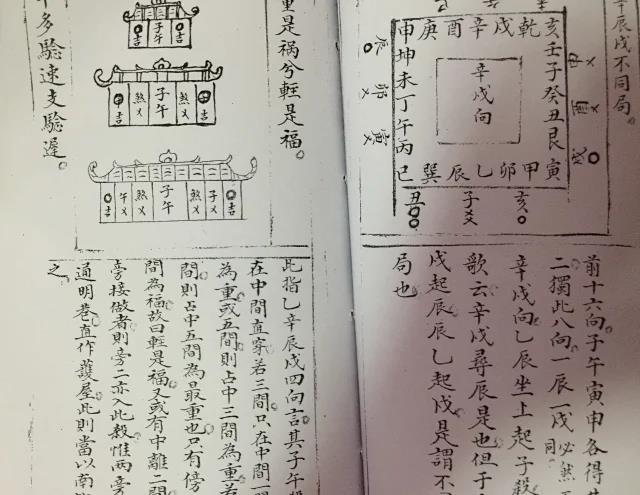 辛辰戌不同局。
亥壬子癸丑艮寅
乾戌辛酉庚
申坤未丁午丙巳
巽辰乙卯甲
辛戌向
申
酉
戌
亥
子
丑
寅
卯
辰
前十六向子午寅申各得
二獨此八向一辰一戌必然
同。
辛戌向乙辰坐上起子殺
歌云辛戌尋辰是也但于
戌起辰辰乙起戌是謂不
局也
重是禍兮輕是福。
多驗速支驗遲。
吉子午吉
吉煞子午煞吉
吉午煞子午煞子吉
此指乙辛辰戌四向言其子午
在中間直穿若三間只在中間一
為重或五間則占中三間為重若
間則占中五間為最重也只有傍
間為福故曰輕是福又或有中離二間
旁接做者則旁二亦入此殺惟兩旁
通明巷直作護屋此則當以南
之